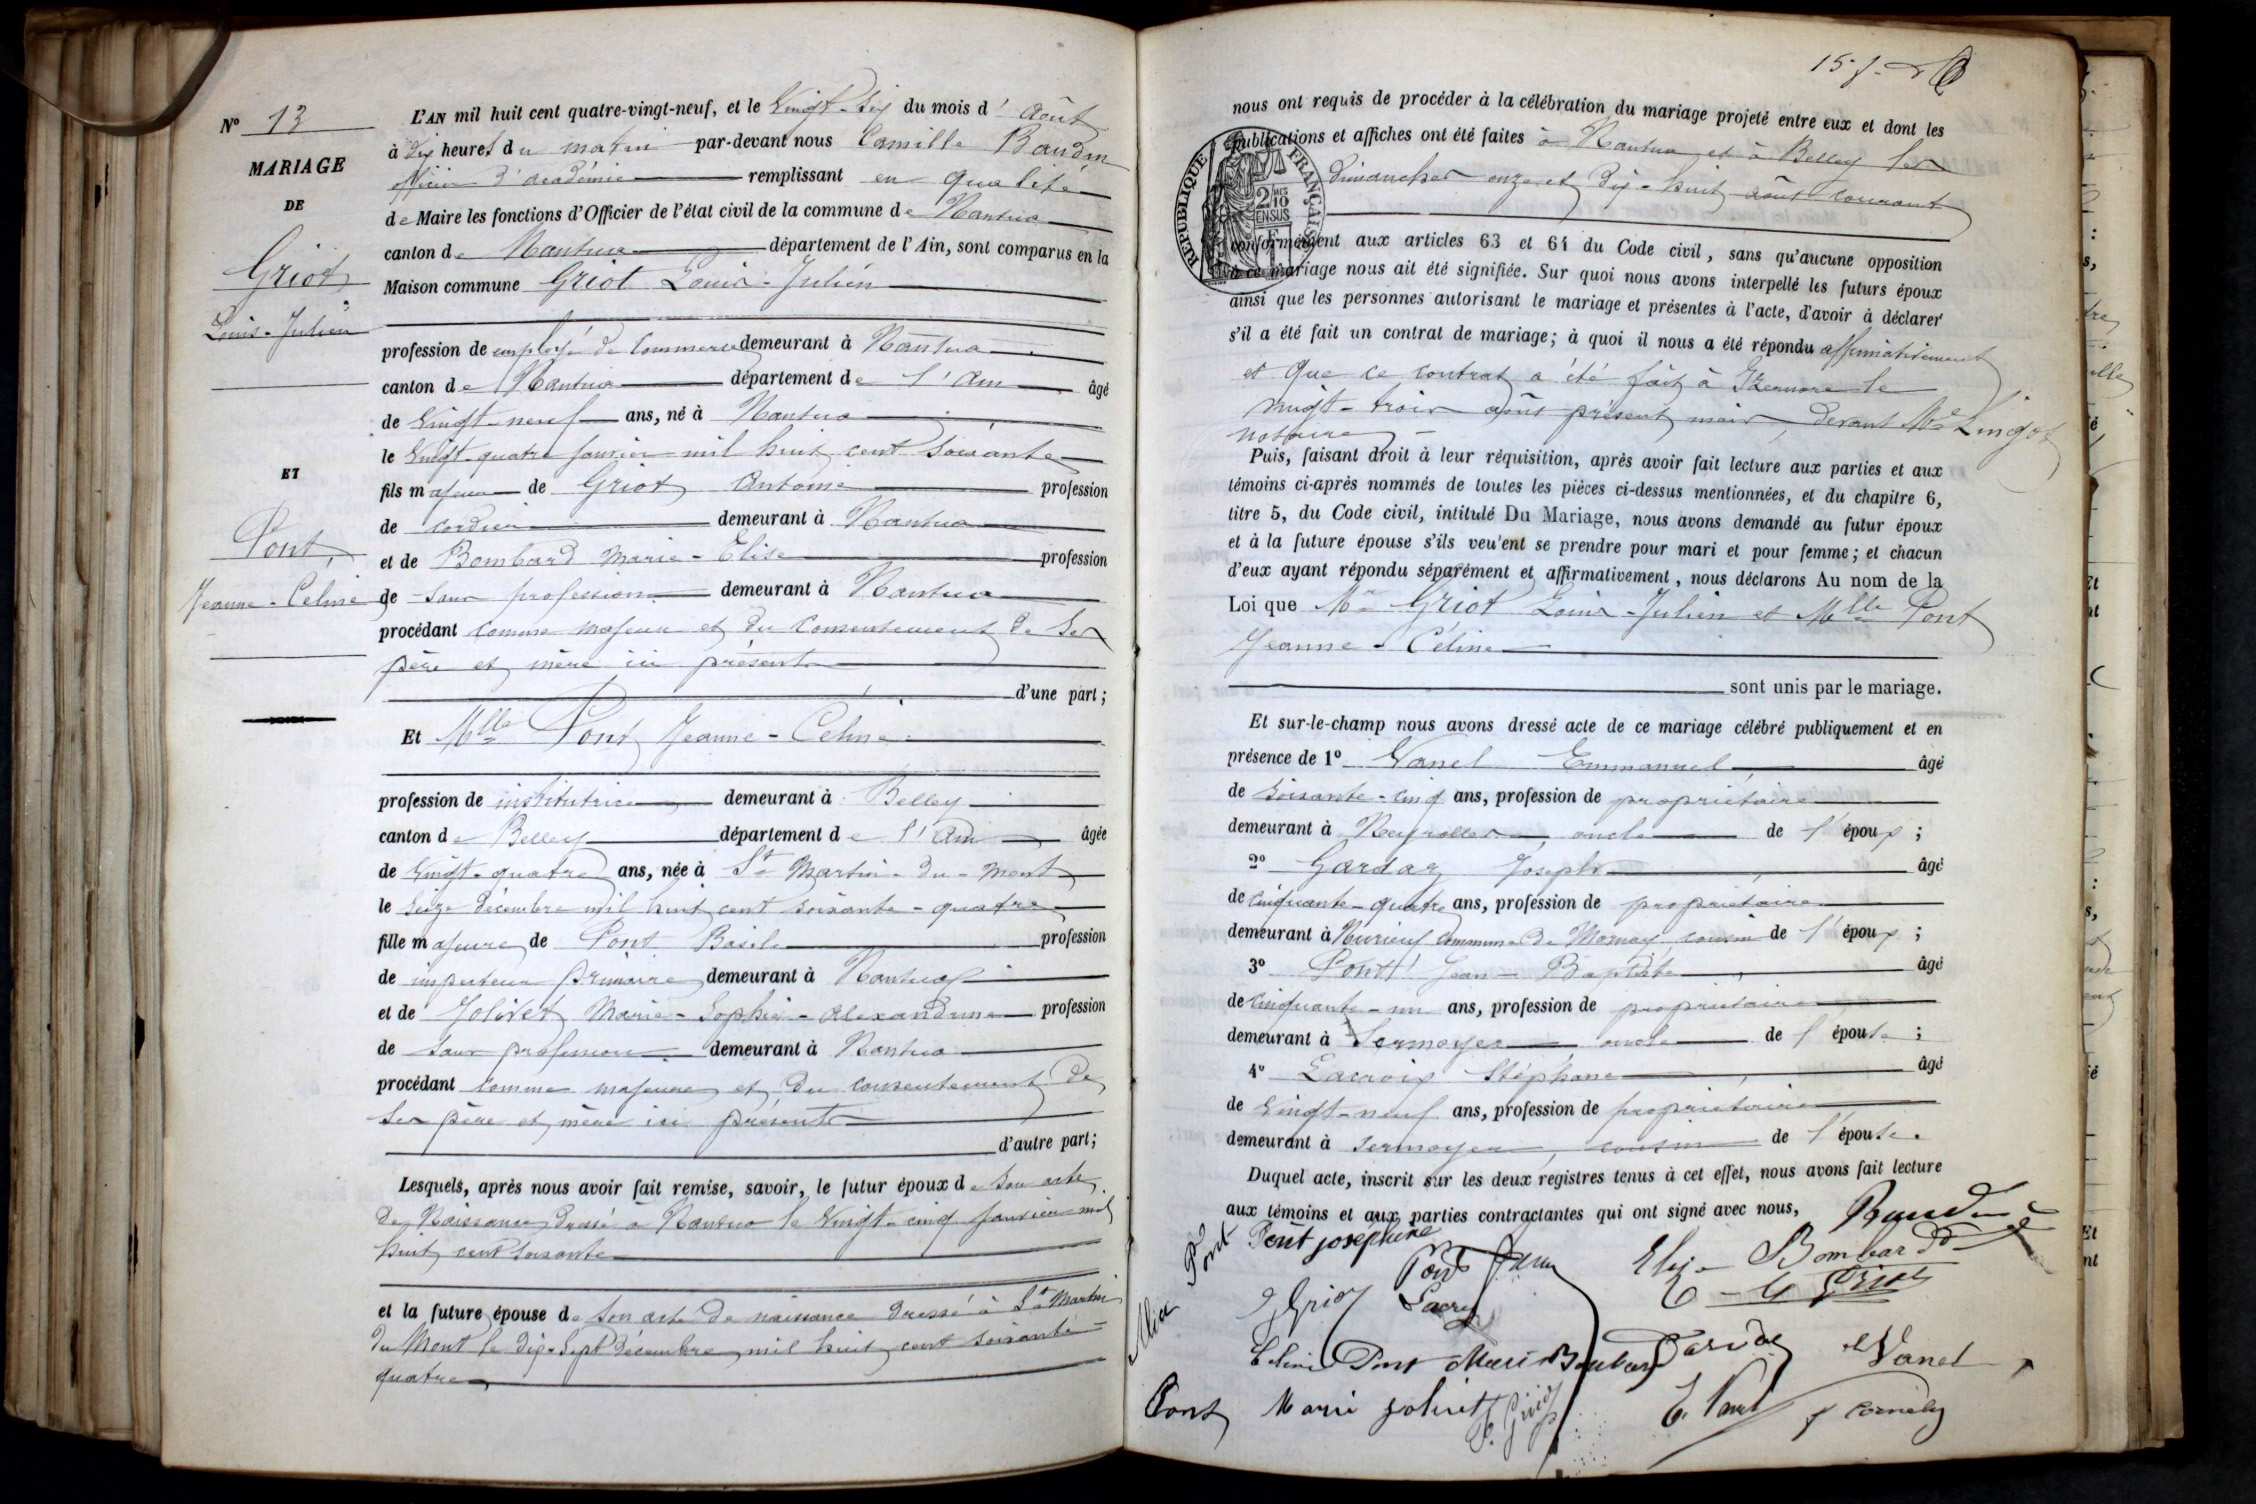 N° 13
MARIAGE
DE
Griot
Louis-Julien
ET
Pont,
Jeanne-Céline
L'AN mil huit cent quatre-vingt-neuf, et le vingt-six du mois d' août
à dix heures du matin par-devant nous Camille Baudin
officier d'académie remplissant en qualité
de Maire les fonctions d'Officier de l'état civil de la commune de Nantua
canton de Nantua département de l'Ain, sont comparus en la
Maison commune Griot Louis-Julien
profession de employé de commerce demeurant à Nantua
canton de Nantua département de l'Ain âgé
de vingt-neuf ans, né à Nantua
le vingt-quatre janvier mil huit cent soixante
fils majeur de Griot Antoine profession
de cordier demeurant à Nantua
et de Bombard Marie-Elise profession
de sans profession demeurant à Nantua
procédant comme majeur et du consentement de ses
père et mère ici présents
d'une part;
Et Mlle Pont Jeanne-Céline
profession de institutrice demeurant à Belley
canton de Belley département de l'Ain âgée
de vingt-quatre ans, née à St Martin-du-Mont
le seize décembre mil huit cent soixante-quatre
fille majeure de Pont Basile profession
de inspecteur primaire demeurant à Nantua
et de Jolivet Marie-Sophie-Alexandrine profession
de sans profession demeurant à Nantua
procédant comme majeure et du consentement de
ses père et mère ici présents
d'autre part;
Lesquels, après nous avoir fait remise, savoir, le futur époux de son acte
de naissance dressé à Nantua le vingt-cinq janvier mil
huit cent soixante
et la future épouse de son acte de naissance dressé à St Martin
du Mont le dix-sept décembre mil huit cent soixante-
quatre
nous ont requis de procéder à la célébration du mariage projeté entre eux et dont les
publications et affiches ont été faites à Nantua et à Belley les
dimanches onze et dix-huit août courant
conformément aux articles 63 et 64 du Code civil, sans qu'aucune opposition
à ce mariage nous ait été signifiée. Sur quoi nous avons interpellé les futurs époux
ainsi que les personnes autorisant le mariage et présentes à l'acte, d'avoir à déclarer
s'il a été fait un contrat de mariage; à quoi il nous a été répondu affirmativement
et que ce contrat a été fait à Izernore le
vingt-trois août présent mois, devant Me Lingot
notaire
Puis, faisant droit à leur réquisition, après avoir fait lecture aux parties et aux
témoins ci-après nommés de toutes les pièces ci-dessus mentionnées, et du chapitre 6,
titre 5, du Code civil, intitulé Du Mariage, nous avons demandé au futur époux
et à la future épouse s'ils veu'ent se prendre pour mari et pour femme; et chacun
d'eux ayant répondu séparément et affirmativement, nous déclarons Au nom de la
Loi que Mr Griot Louis-Julien et Mlle Pont
Jeanne-Céline
sont unis par le mariage.
Et sur-le-champ nous avons dressé acte de ce mariage célébré publiquement et en
présence de 1° Vanel Emmanuel, âgé
de soixante-cinq ans, profession de propriétaire
demeurant à Neyrolles, oncle de l'époux;
2° Gardaz Joseph, âgé
de cinquante-quatre ans, profession de propriétaire
demeurant à Nurieux commune de Mornay cousin de l'époux;
3° Pont Jean-Baptiste, âgé
de cinquante-un ans, profession de propriétaire
demeurant à Sermoyer, oncle de l'épouse;
4° Lacroix Stéphane, âgé
de vingt-neuf ans, profession de propriétaire
demeurant à Sermoyer, cousin de l'épouse.
Duquel acte, inscrit sur les deux registres tenus à cet effet, nous avons fait lecture
aux témoins et aux parties contractantes qui ont signé avec nous, Baudin
Pont joséphine
Pont
Elise Bombard
J Griot
Céline Pont Marie Bombard Gardaz Vanel
Pont Marie Jolivet
REPUBLIQUE FRANÇAISE
2/10 EN SUS